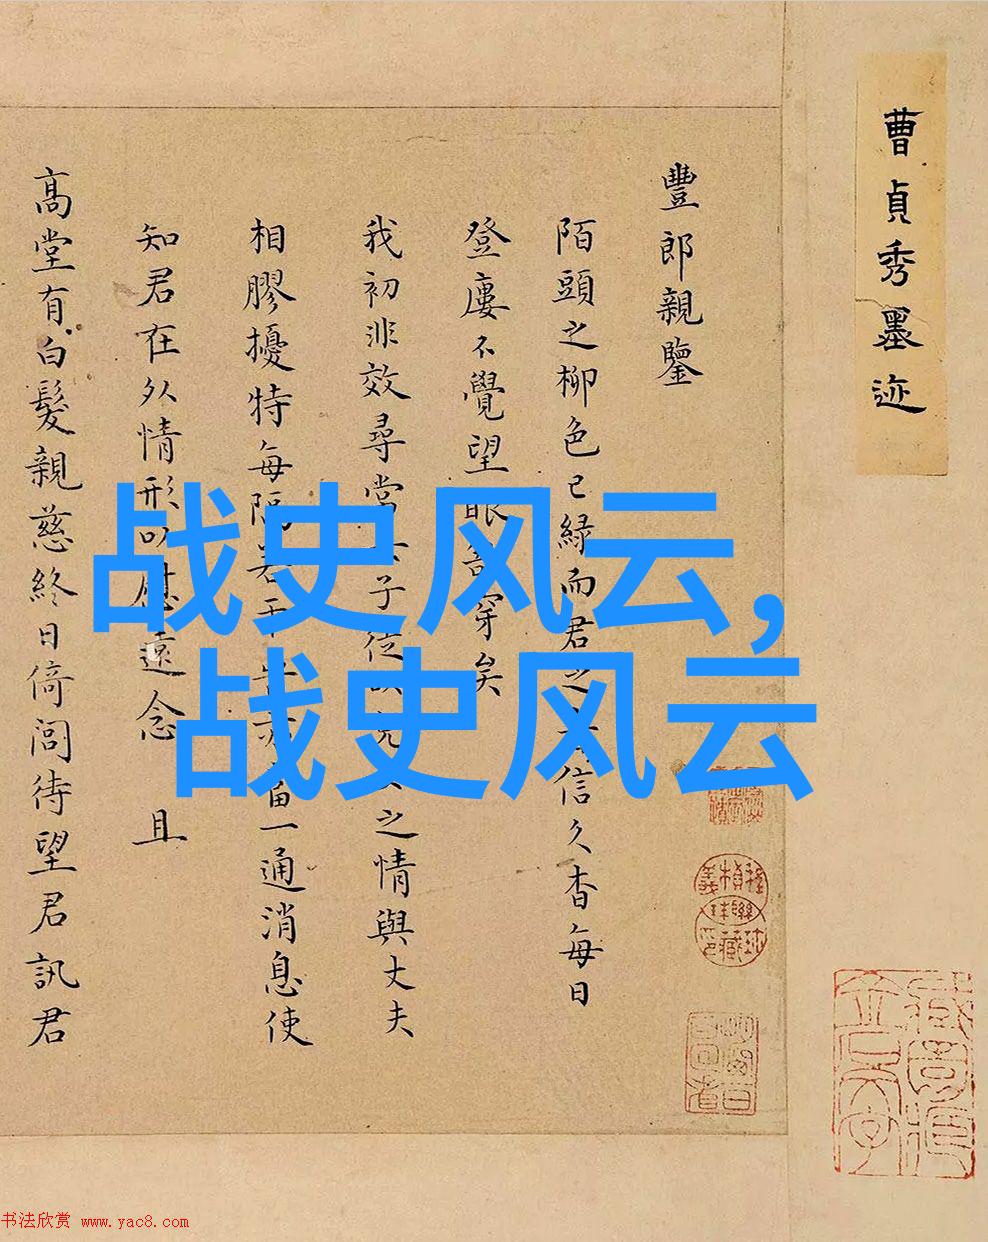 曹貞秀墨迹
豐郎親鑒
陌頭之柳色已緑而君之信久杳每日
登廔不覺望眼穿矣
我初非效尋當子從之情與丈夫
相膠擾特每隔若干一通消息使
知君在外情形以慰遠念 且
高堂有白髮親慈終日倚閭待望君訊君
战史风云,
战史风云
书法欣赏 www.yac8.com